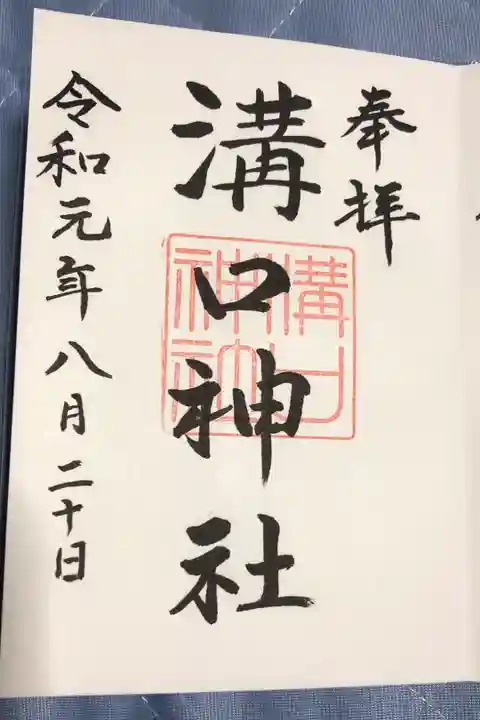 奉拝
溝口神社
溝口神社
令和元年八月二十日